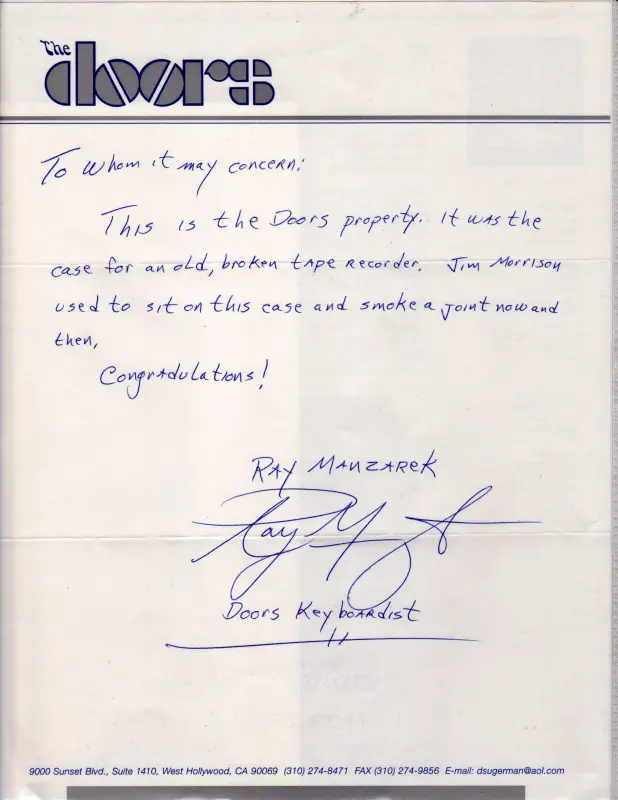 The doors
To Whom it may concern:
This is the Doors property. It was the
case for an old, broken tape recorder. Jim Morrison
used to sit on this case and smoke a joint now and
then,
Congradulations!
Ray Manzarek
Ray M
Doors Keyboardist
9000 Sunset Blvd., Suite 1410, West Hollywood, CA 90069 (310) 274-8471 FAX (310) 274-9856 E-mail: dsugerman@aol.com